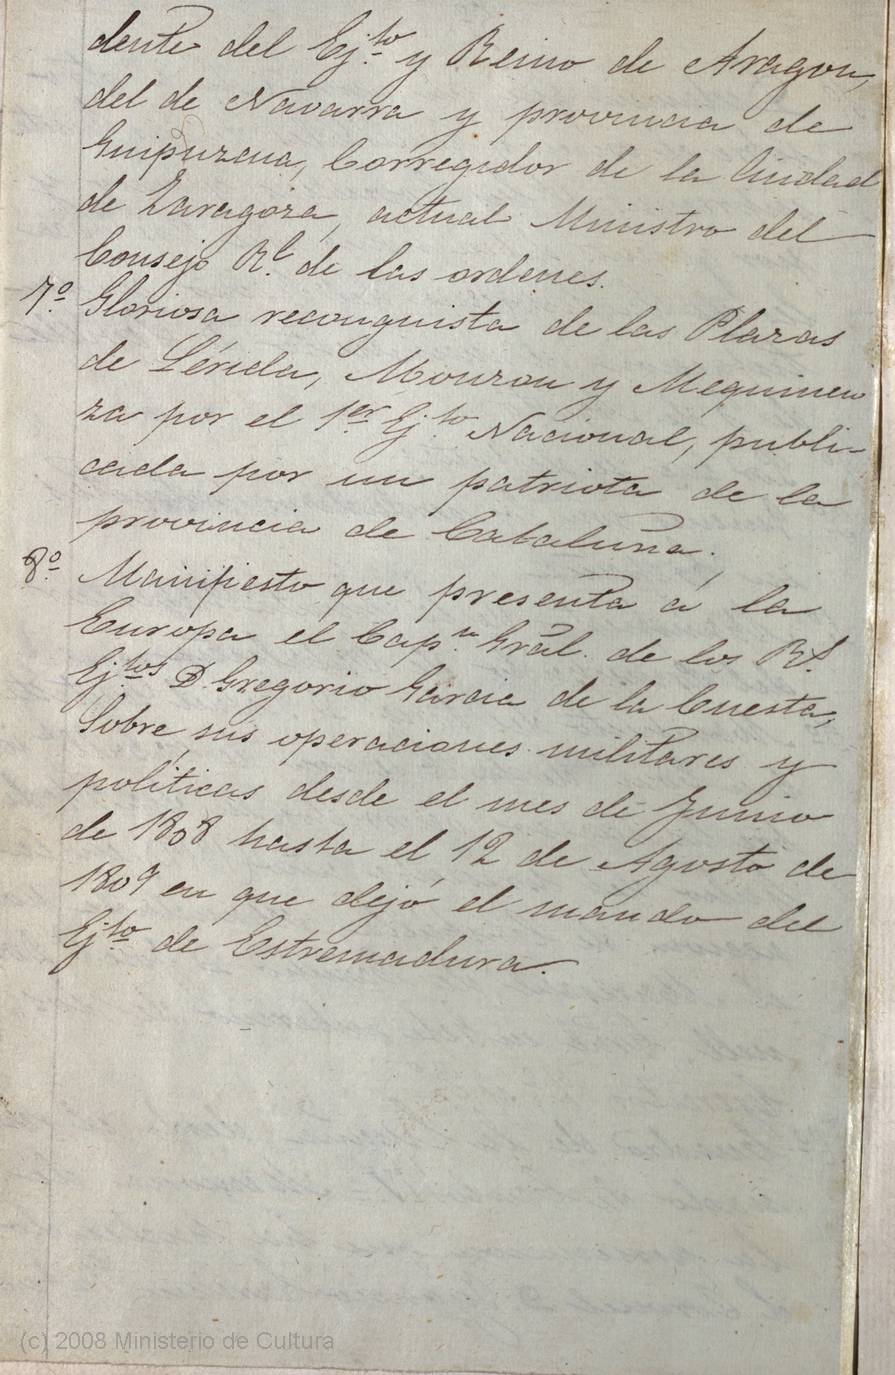 dente del Ejto y Reino de Aragon,
del de Navarra y provincia de
Guipuzcua, Corregidor de la Ciudad
de Zaragoza, actual Ministro del
Consejo Rl. de las ordenes.
7º. Gloriosa reconquista de las Plazas
de Lérida, Monzon y Mequinen
za por el 1er Ejto Nacional, publi-
cada por un patriota de la
provincia de Cataluña.
8º. Manifiesto que presenta á la
Europa el Capn Grãl. de los Rs.
Ejtos D. Gregorio Garcia de la Cuesta,
Sobre sus operaciones militares y
políticas desde el mes de Junio
de 1808 hasta el 12 de Agosto de
1809 en que dejó el mando del
Ejto de Estremadura.
(c) 2008 Ministerio de Cultura